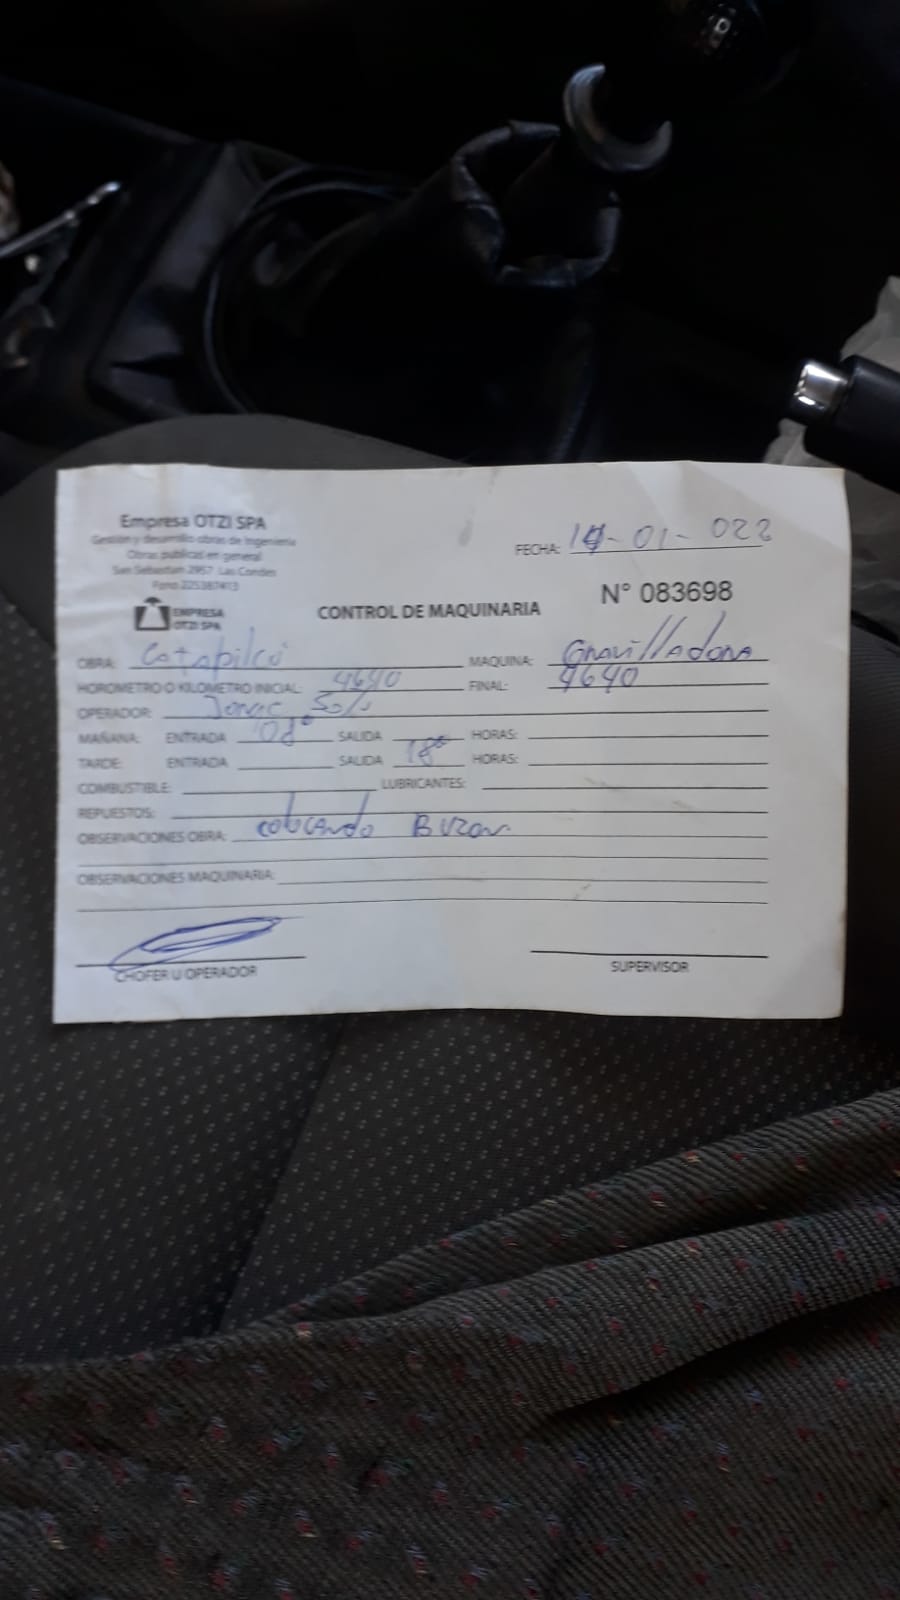 Empresa OTZI SPA
Gestión y desarrollo obras de Ingenieria
Obras publicas en general
San Sebastian 2957 Las Condes
Fono 225387413
EMPRESA
OTZI SPA
FECHA: 14-01-022
N° 083698
CONTROL DE MAQUINARIA
OBRA: Catapilco MAQUINA: Gravilladora
HOROMETRO O KILOMETRO INICIAL: 4640 FINAL: 4640
OPERADOR: Jorge Solis
MAÑANA: ENTRADA 08° SALIDA HORAS:
TARDE: ENTRADA SALIDA 18° HORAS:
COMBUSTIBLE: LUBRICANTES:
REPUESTOS:
OBSERVACIONES OBRA: colocando Buzon
OBSERVACIONES MAQUINARIA:
CHOFER U OPERADOR SUPERVISOR